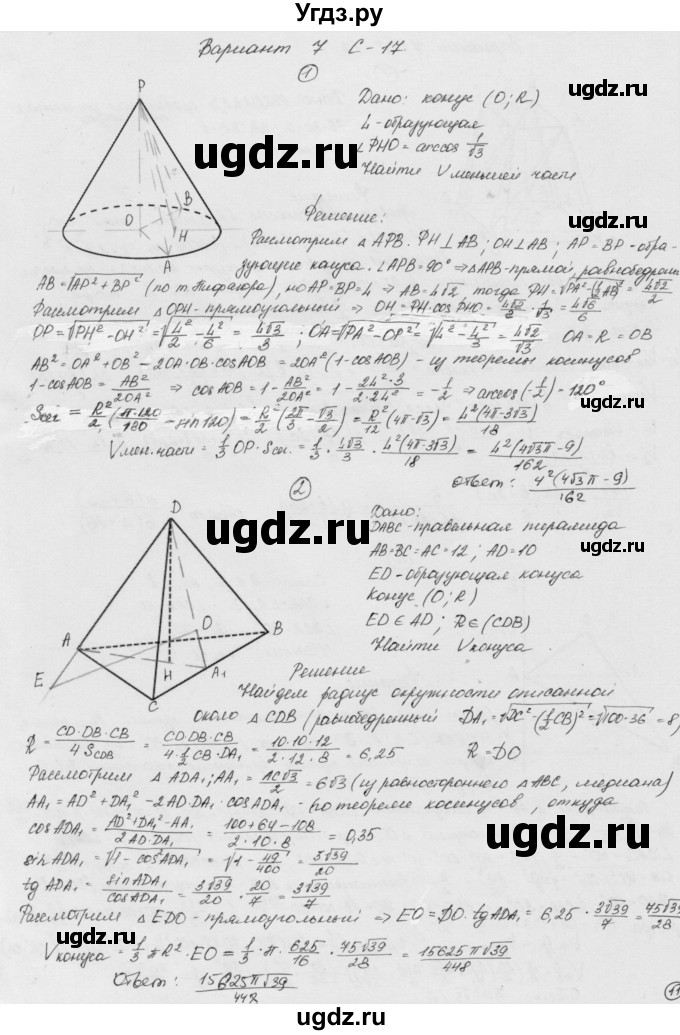 Угдз.ру
Вариант 7 С-17
1
Дано: конус (O; R)
4 - образующая
∠PHO = arccos 1/√3
Найти V меньшей части
P
O
B
H
A
Решение:
Рассмотрим △APB. PH⊥AB; OH⊥AB; AP=BP - обра-
зующие конуса. ∠APB=90° ⇒ △APB - прямой, равнобедрен
AB=√(AP²+BP²) (по т. Пифагора), но AP=BP=4 ⇒ AB=4√2, тогда PH=√(PA²-(1/2 AB)²)=4√2/2
Рассмотрим △OPH - прямоугольный ⇒ OH=PH·cosPHO=4√2/2·1/√3=4√6/6
OP=√(PH²-OH²)=√(4²/2-4²/6)=4√3/3; OA=√(PA²-OP²)=√(4²-4²/3)=4√2/√3 OA=R=OB
AB²=OA²+OB²-2OA·OB·cosAOB=2OA²(1-cosAOB) - из теоремы косинусов
1-cosAOB=AB²/2OA² ⇒ cosAOB=1-AB²/2OA²=1-24²·3/2·24²=-1/2 ⇒ arccos(-1/2)=120°
Sсег=R²/2(π·120/180-sin120)=R²/2(2π/3-√3/2)=R²/12(4π-√3)=4²(4π-3√3)/18
Vмен.части=1/3 OP·Sсег=1/3·4√3/3·4²(4π-3√3)/18=4²(4√3π-9)/162
Ответ: 4²(4√3π-9)/162
2
Дано:
DABC - правильная пирамида
AB=BC=AC=12; AD=10
ED - образующая конуса
Конус (O; R)
ED∈AD; R∈(CDB)
Найти Vконуса
D
A
O
B
H
A₁
E
C
Решение
Найдем радиус окружности описанной
около △CDB (равнобедренный DA₁=√(DC²-(1/2CB)²)=√(100-36)=8)
R=CD·DB·CB/4SCDB=CD·DB·CB/4·1/2CB·DA₁=10·10·12/2·12·8=6,25 R=DO
Рассмотрим △ADA₁; AA₁=AC√3/2=6√3 (из равностороннего △ABC, медиана)
AA₁=AD²+DA₁²-2AD·DA₁·cosADA₁ - по теореме косинусов, откуда
cosADA₁=AD²+DA₁²-AA₁/2AD·DA₁=100+64-108/2·10·8=0,35
sinADA₁=√(1-cos²ADA₁)=√(1-49/400)=3√39/20
tgADA₁=sinADA₁/cosADA₁=3√39/20·20/7=3√39/7
Рассмотрим △EDO - прямоугольный ⇒ EO=DO·tgADA₁=6,25·3√39/7=75√39/28
Vконуса=1/3πR²·EO=1/3·π·625/16·75√39/28=15625π√39/448
Ответ: 15625π√39/442
11
ugdz.ru
ugdz.ru
ugdz.ru
ugdz.ru
ugdz.ru
ugdz.ru
ugdz.ru
ugdz.ru